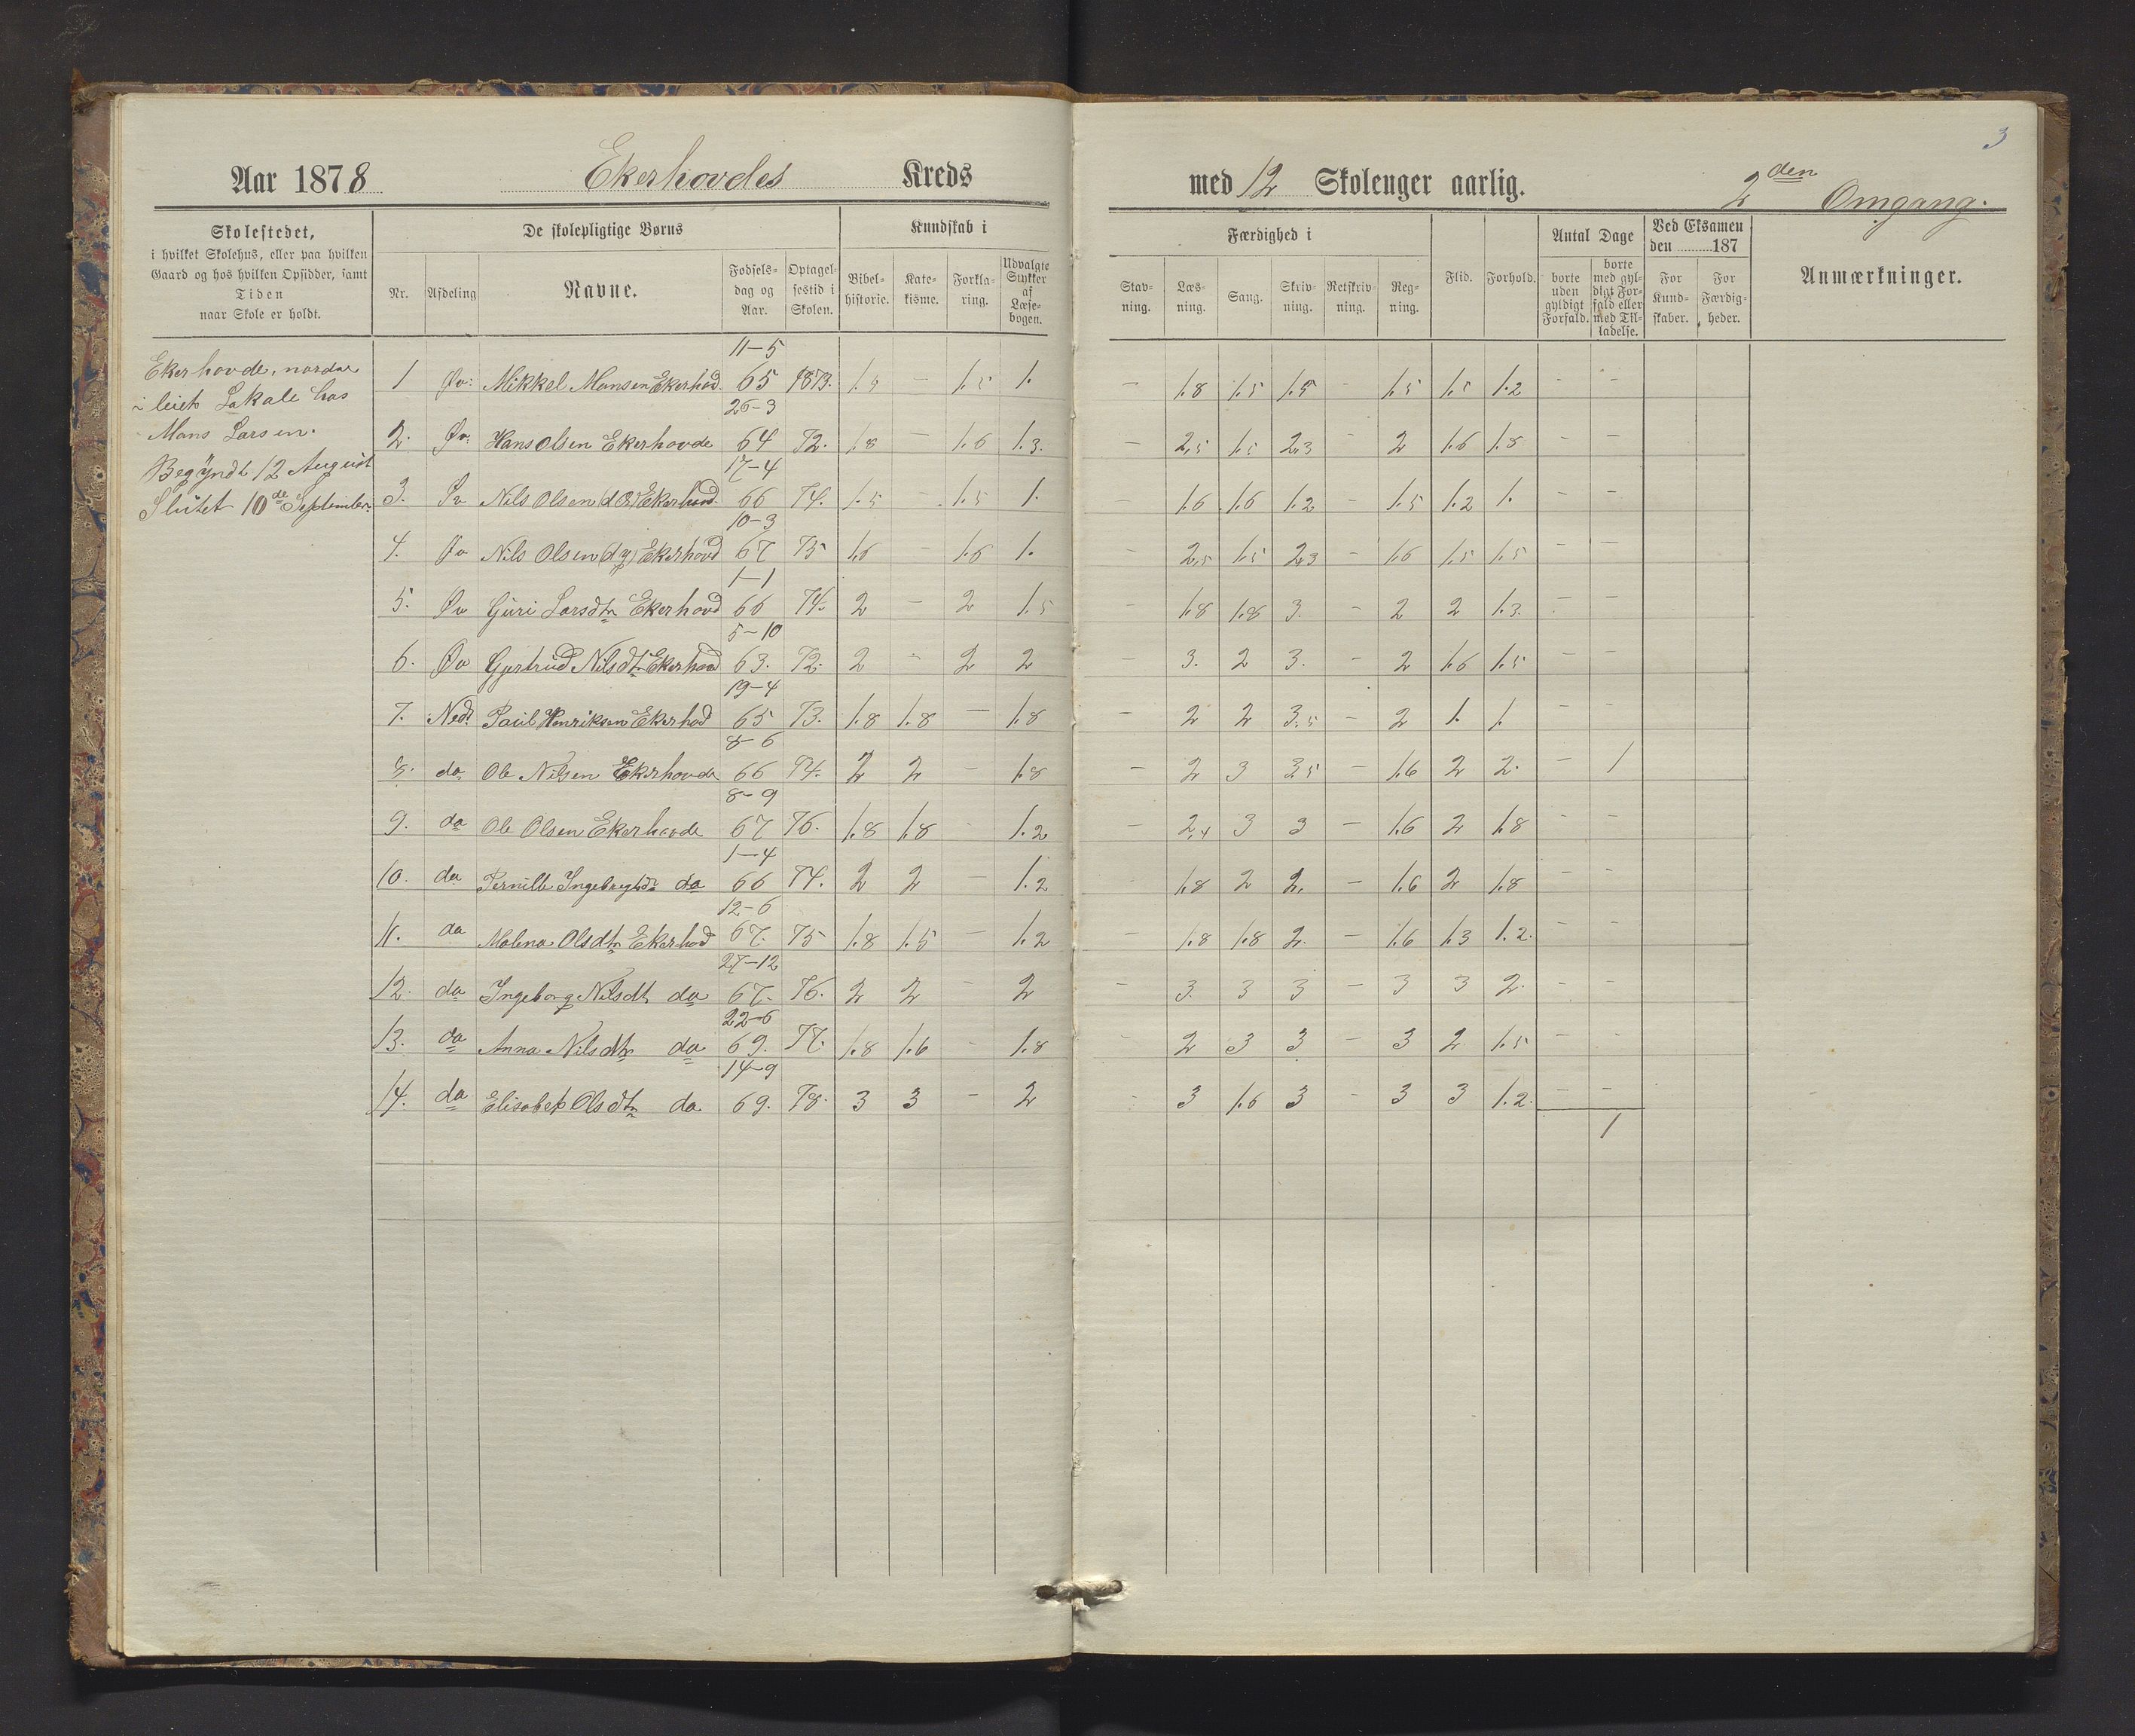 3
Aar 1878 Ekerhovdes Kreds med 12 Skoleuger aarlig. 2den Omgang.
Skolestedet,
i hvilket Skolehus, eller paa hvilken
Gaard og hos hvilken Opsidder, samt
Tiden
naar Skole er holdt.
De skolepligtige Børns
Nr. Afdeling Navne. Fødselsdag og Aar. Optagelsestid i Skolen.
Kundskab i
Bibelhistorie. Katekisme. Forklaring. Udvalgte Stykker af Læsebogen.
Færdighed i
Stavning. Læsning. Sang. Skrivning. Retskrivning. Regning. Flid. Forhold.
Antal Dage
borte uden gyldigt Forfald. borte med gyldigt Forfald eller med Tilladelse.
Ved Eksamen
den 187
For Kundskaber. For Færdigheder.
Anmærkninger.
Ekerhovde, nordre
i leiet Lokale hos
Mons Larsen.
Begyndt 12 August
Slutet 10de September.
11-5
1 Øv: Mikkel Monsen Ekerhovd 65 1873. 1.5 - 1.5 1. - 1.8 1.5 1.5 - 1.5 1.5 1.2 - -
26-3
2. Øv. Hans Olsen Ekerhovde 64 72. 1.8 - 1.6 1.3. - 2,5 1.5 2,3 - 2 1.6 1.8 - -
17-4
3. Øv Nils Olsen d Æ Ekerhovd. 66 74. 1.5 - 1.5 1. - 1.6 1.6 1.2 - 1.5 1.2 1. - -
10-3
4. Øv Nils Olsen d y Ekerhovd 67 75 1.6 - 1.6 1. - 2,5 1.5 2,3 - 1.6 1.5 1.5 - -
1-1
5. Øv Guri Larsdtr Ekerhovd 66 74. 2 - 2 1.5 - 1.8 1.8 3. - 2 2 1.3. - -
5-10
6. Øv Gjertrud Nilsdtr Ekerhovd 63. 72. 2 - 2 2 - 3. 2 3. - 2 1.6 1.5 - -
19-4
7. Ned. Paul Henriksen Ekerhod 65 73. 1.8 1.8 - 1.8 - 2 2 3.5 - 2 1. 1. - -
8-6
8. do Ole Nilsen Ekerhovde 66 74. 2 2 - 1.8 - 2 3 3.5 - 1.6 2 2. - 1
8-9
9. do Ole Olsen Ekerhovde 67 76. 1.8 1.8 - 1.2 - 2,4 3 3 - 1.6 2 1.8 - -
1-4
10. do Pernille Ingebrigtsdr do 66 74. 2 2 - 1.2 - 1.8 2 2. - 1.6 2 1.8 - -
12-6
11. do Malena Olsdtr Ekerhovd 67. 75 1.8 1.5 - 1.2 - 1.8 1.8 2. - 1.6 1.3 1.2. - -
27-12
12. do Ingeborg Nilsdt do 67. 76. 2 2 - 2 - 3. 3 3 - 3 3 2. - -
22-6
13. do Anna Nilsdtr do 69. 77. 1.8 1.6 - 1.8 - 2 3 3 - 3 2 1.5 - -
14-9
14. do Elisabet Olsdtr do 69. 78. 3 3 - 2 - 3 1.6 3 - 3 3 1.2. - -
1